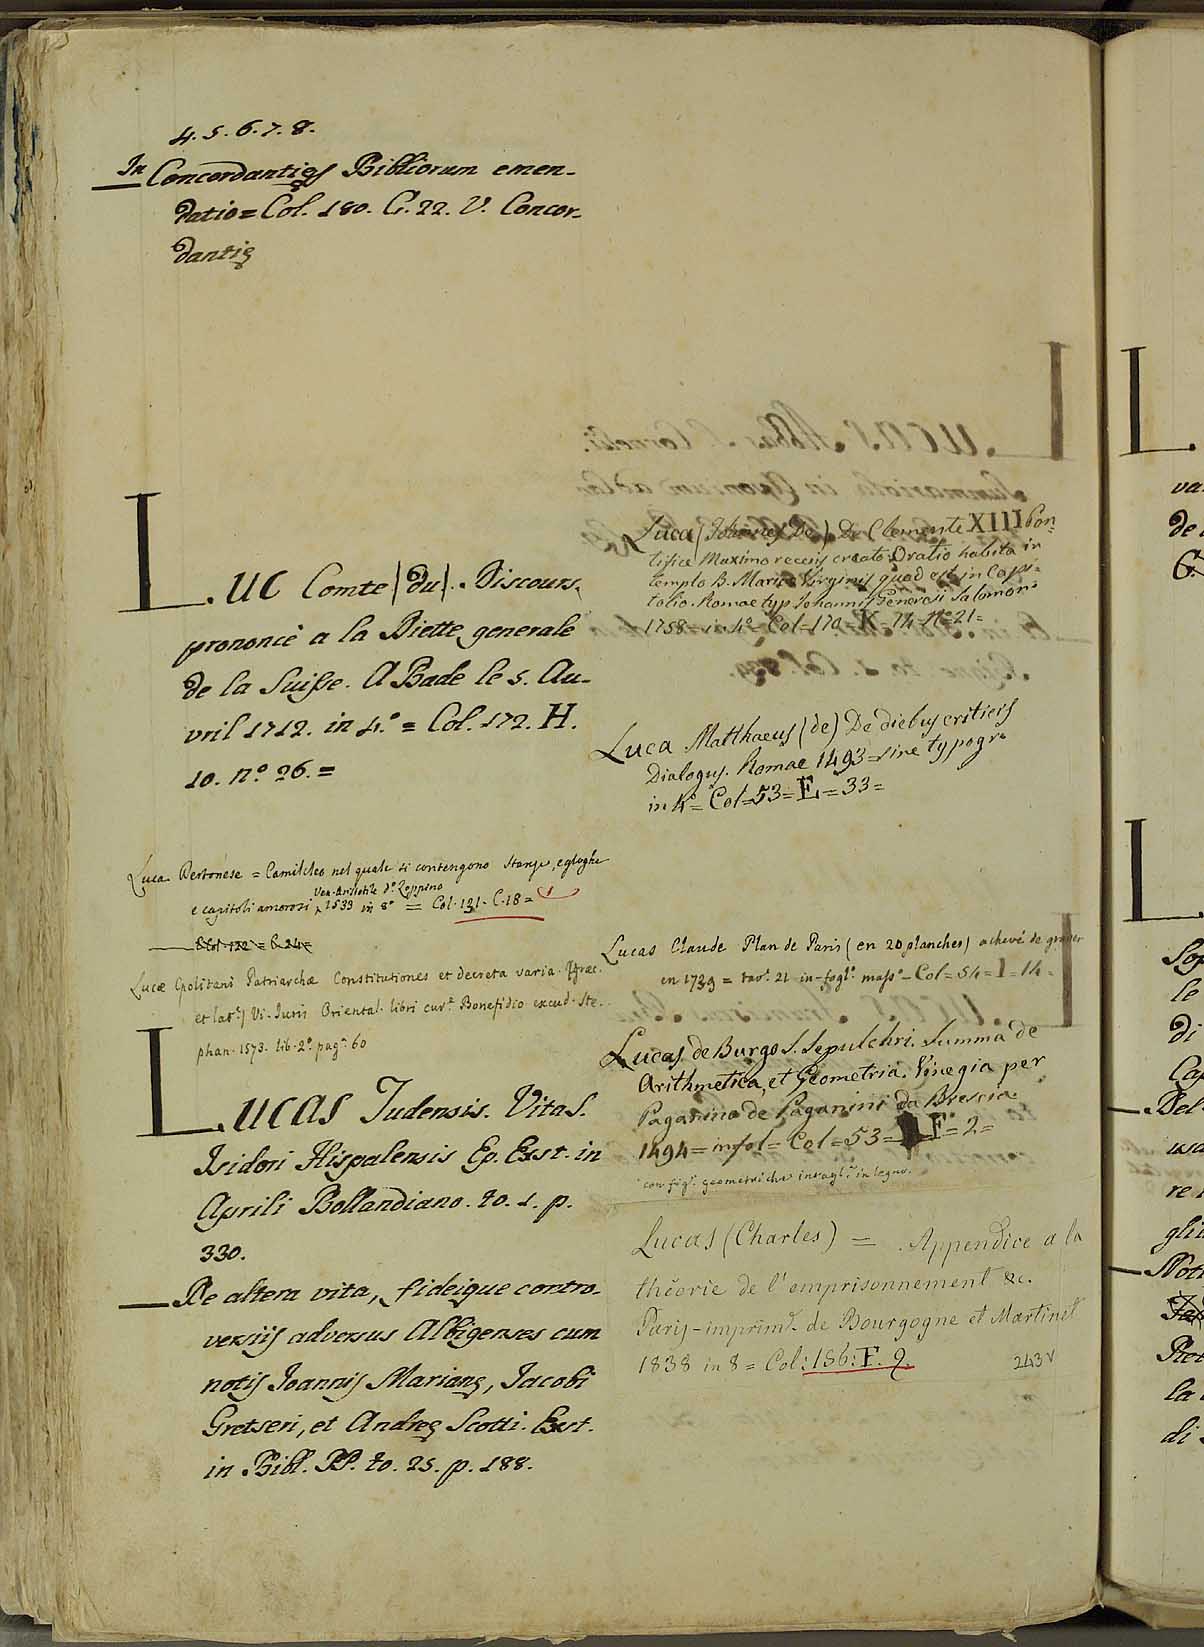 4. 5. 6. 7. 8.
In Concordantias Bibliorum emen-
datio = Col. 180. C. 22. V. Concor-
dantię
LUC Comte (du). Discours,
prononcè a la Diette generale
de la Suisse. A Bade le 5. Au-
vril 1712. in 4.° = Col. 172. H.
10. n.° 26. =
Luca Dertonese = Camilcleo nel quale si contengono stanze, egloghe
Ven. Aristotile d.° Zoppino
e capitoli amorosi, 1533 in 8° = Col. 131. C. 18 =
Col. 122 = C. 24 =
Lucæ Cpolitani Patriarchæ Constitutiones et decreta varia. Græc.
et lat.e) Vi. Juris Oriental. libri cur.a Bonefidio excud. Ste-
phan. 1573. lib. 2.° pag. 60
LUCAS Tudensis. Vita S.
Isidori Hispalensis Ep. Exst. in
Aprili Bollandiano. to. 1. p.
330.
De altera vita, fideique contro-
versiis adversus Albigenses cum
notis Joannis Marianę, Jacobi
Gretseri, et Andreę Scotti. Exst.
in Bibl. PP. to. 25. p. 188.
Luca (Johannes De) De Clemente XIII Pon-
tifice Maximo recens creato Oratio habita in
templo B. Mariæ Virginis quod est in Capi-
tolio. Romae typ. Johannis Generosi Salomoni
1758 = in 4° = Col = 170 = K = 14 = n° 21 =
Luca Matthaeus (de) De diebus criticis
Dialogus. Romae 1493 = sine typogr.°
in 4° = Col = 53 = E = 33 =
Lucas Claude Plan de Paris (en 20 planches) achevé de graver
en 1739 = tav.e 21 in-fogl.° mass.° = Col = 54 = I = 14 =
Lucas de Burgo S. Sepulchri. Summa de
Arithmetica, et Geometria. Vinegia per
Paganino de Paganini da Brescia
1494 = in fol = Col = 53 = F = 2 =
con fig.e geometriche intagl.e in legno.
Lucas (Charles) = Appendice a la
théorie de l'emprisonnement &c.
Paris - imprim.e de Bourgogne et Martinet
1838 in 8 = Col: 186: F. 9.
243v
L
va.
de
L
Sop
le
di
Cap
Del
re
gli
la
di